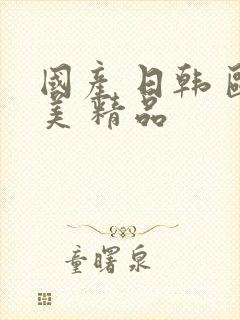 國產日韓歐
美精品
童曙泉